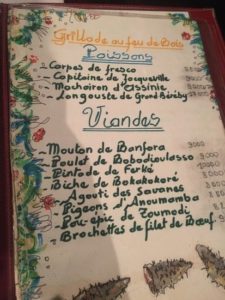 Grillade au feu de Bois
Poissons
- Carpes de fresco
- Capitaine de Jacqueville
- Machoiron d'Assinie
- Langouste de Grand Béréby
Viandes
Mouton de Banfora 3000
Poulet de Bobodioulasso
Pintade de Ferké
Biche de Bokakokoré
Agouti des Savanes
Pigeons d'Anoumamba
Porc-epic de Toumodi
Brochettes de filet de Bœuf